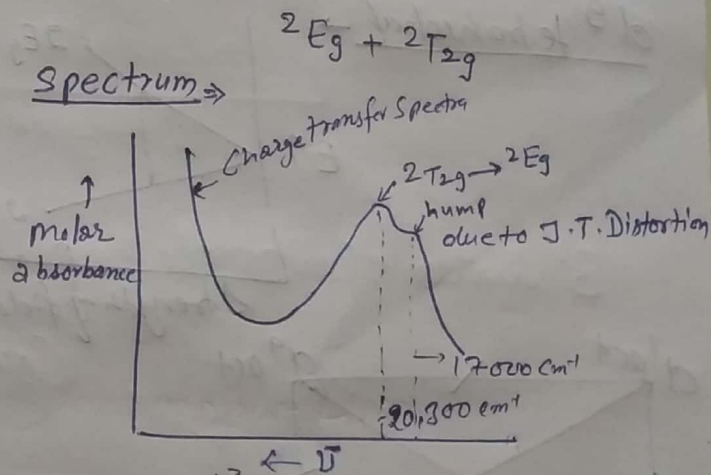 ²Eg + ²T₂g
Spectrum ⇒
Charge transfer Spectra
²T₂g → ²Eg
hump
due to J.T. Distortion
↑
molar
absorbance
→ 17000 cm⁻¹
20,300 cm⁻¹
← ῡ